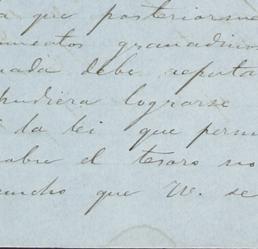 a que posteriorme
mentos granadinos
nada debe reputa
pudiera lograrse
la lei que perm
sobre el tesoro no
mucho que W. se